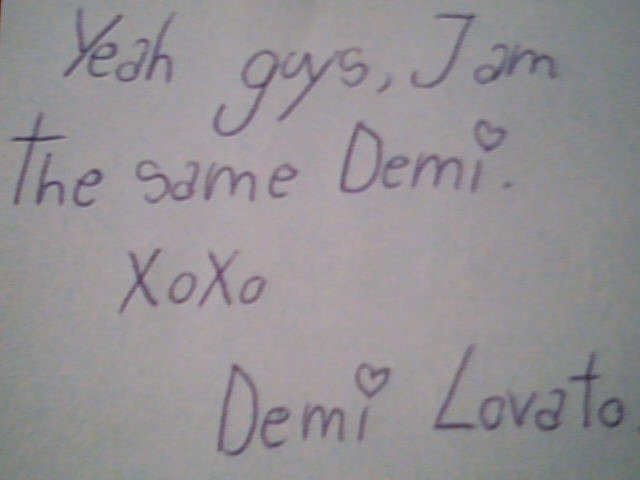 Yeah guys, I am
the same Demi.
XoXo
Demi Lovato.